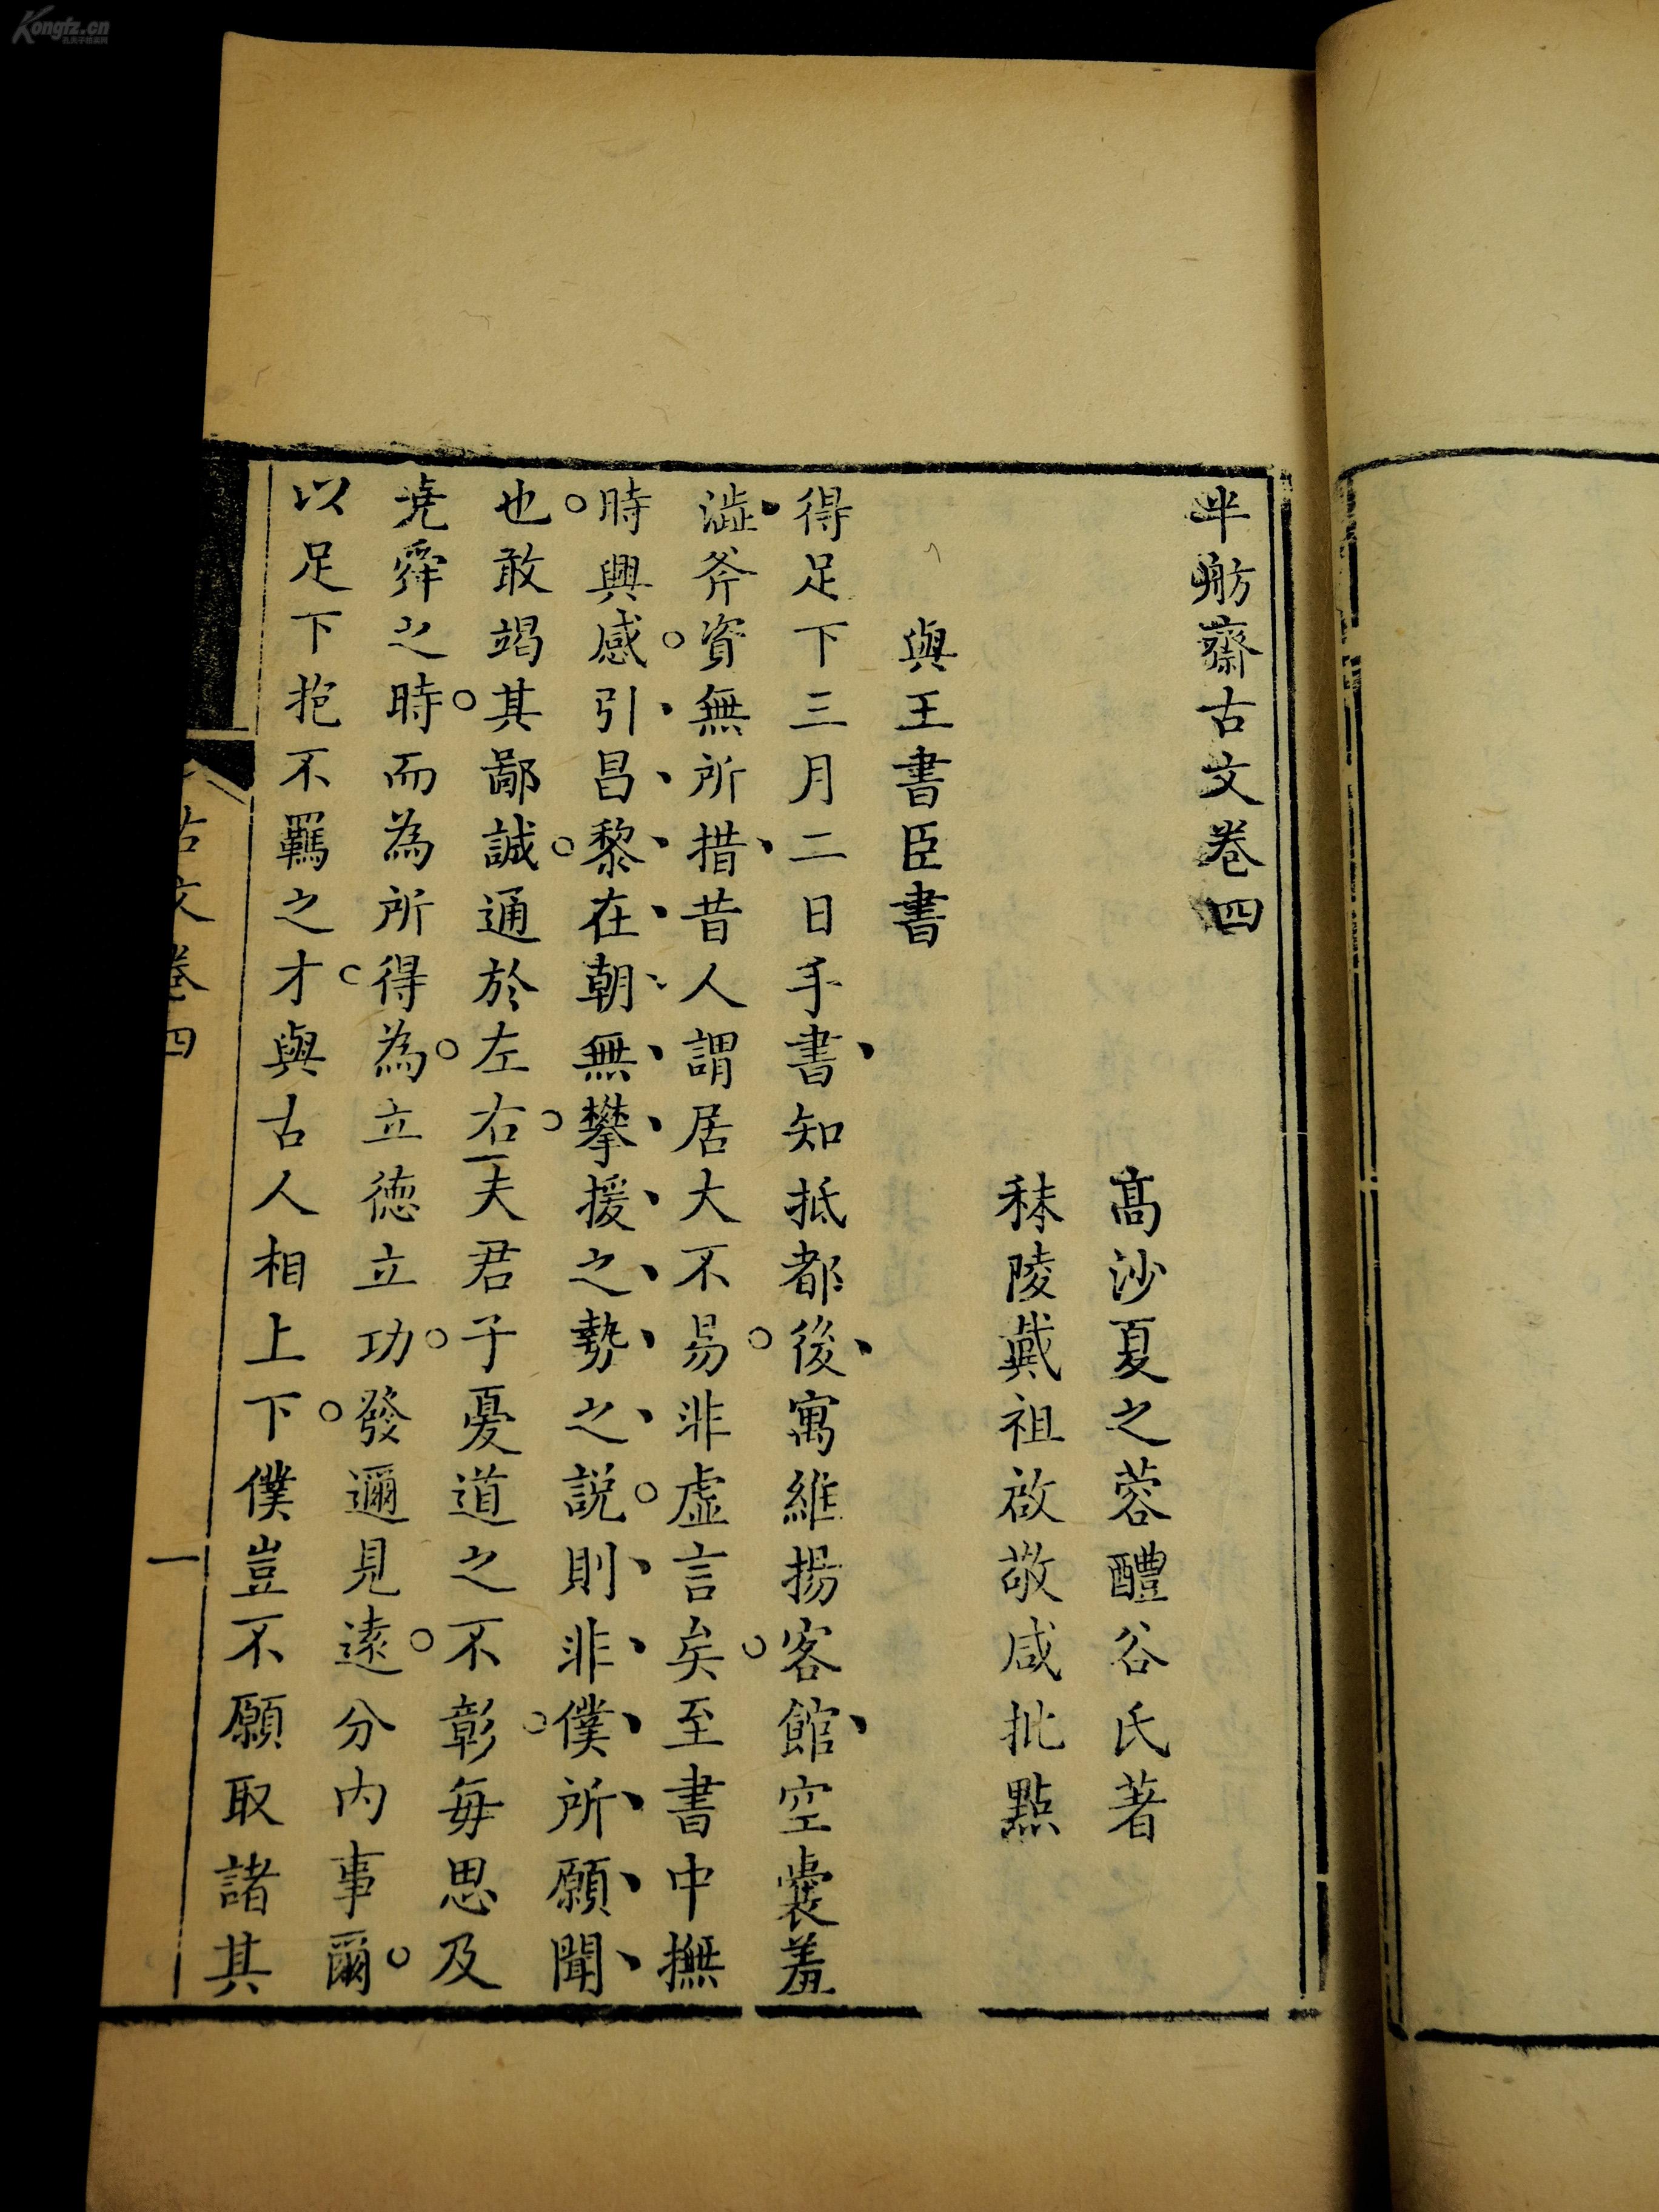 半舫齋古文卷四
高沙夏之蓉醴谷氏著
秣陵戴祖啟敬咸批點
與王書臣書
得足下三月二日手書知抵都後寓維揚客館空囊羞
澁斧資無所措昔人謂居大不易非虛言矣至書中撫
時興感引昌黎在朝無攀援之勢之説則非僕所願聞
也敢竭其鄙誠通於左右夫君子憂道之不彰每思及
堯舜之時而為所得為立德立功發邇見遠分內事爾
以足下抱不羈之才與古人相上下僕豈不願取諸其
古文卷四
一
Kongfz.cn